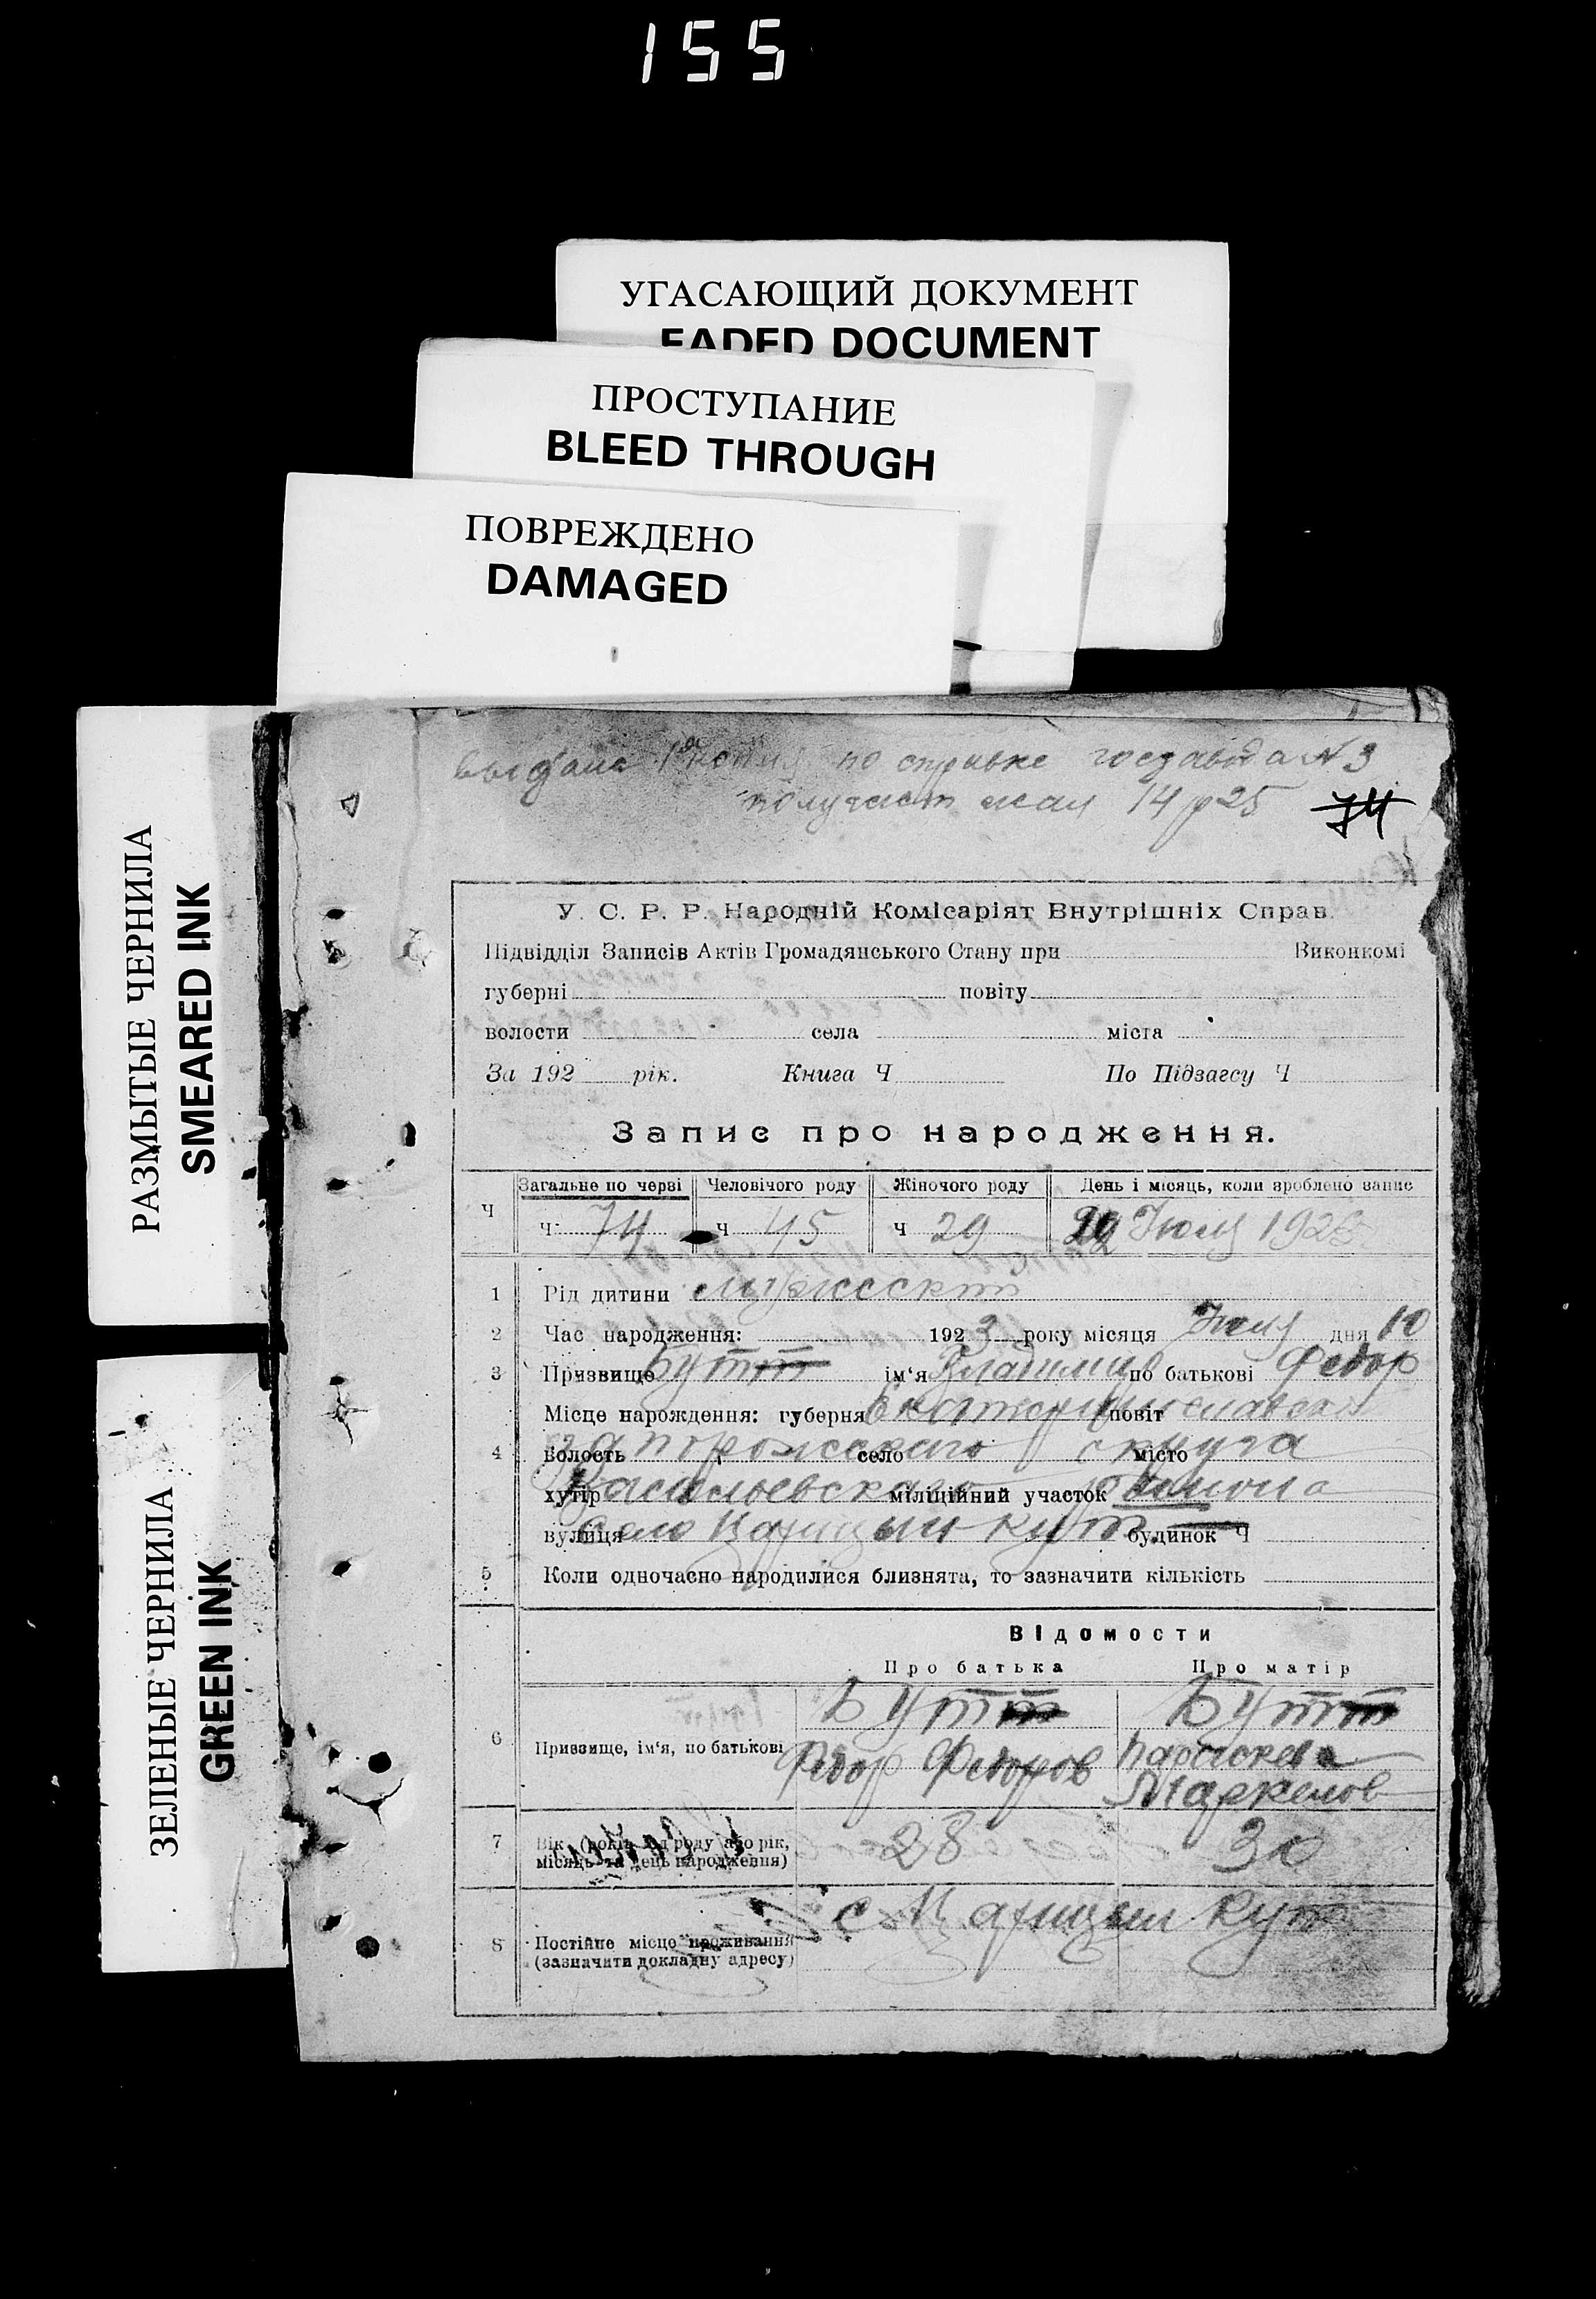 155
УГАСАЮЩИЙ ДОКУМЕНТ
FADED DOCUMENT
ПРОСТУПАНИЕ
BLEED THROUGH
ПОВРЕЖДЕНО
DAMAGED
РАЗМЫТЫЕ ЧЕРНИЛА
SMEARED INK
ЗЕЛЕНЫЕ ЧЕРНИЛА
GREEN INK
выдана по справке N 3
получает 14 р 25 74
У. С. Р. Р. Народній Комісаріят Внутрішніх Справ.
Підвідділ Записів Актів Громадянського Стану при Виконкомі
губерні повіту
волости села міста
За 192 рік. Книга Ч По Підзагсу Ч
Запис про народження.
Ч Загальне по черві Человічого роду Жіночого роду День і місяць, коли зроблено запис
Ч 74 Ч 45 Ч 29 Июля 192
1 Рід дитини мужеский
2 Час народження: 1923 року місяця Июля дня 10
3 Призвище Бутт ім'я Владимир по батькові Федор
4 Місце нарождення: губерня Екатеринославская повіт
волость Запорожского село округа місто
хутір Васильевского міліційний участок района
вулиця село Царицын кут будинок Ч
5 Коли одночасно народилися близнята, то зазначити кількість
Відомости
Про батька Про матір
6 Призвище, ім'я, по батькові Бутт Федор Федоров Бутт Параскева Маркелов
7 Вік (років від роду або рік, місяць та день народження) 28 30
8 Постійне місце проживання (зазначити докладну адресу) с. Царицын Кут